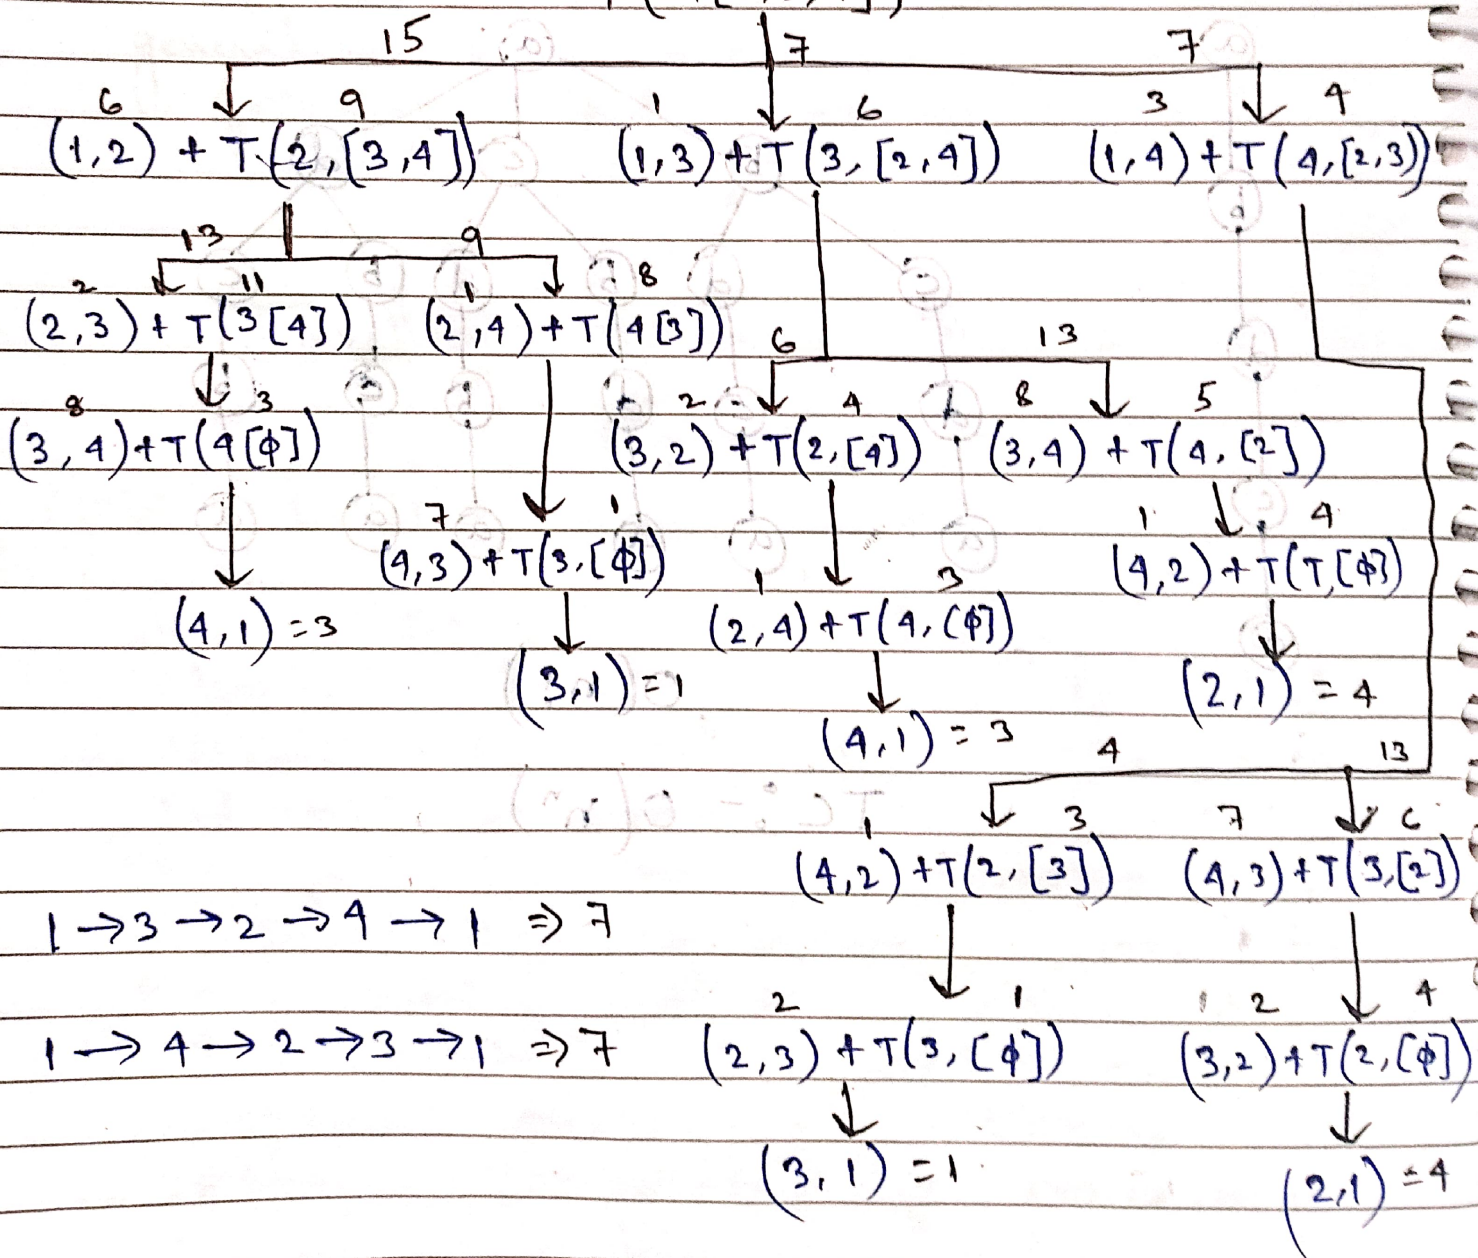 15 7 7
6 9 1 6 3 4
(1,2) + T(2,[3,4]) (1,3) + T(3,[2,4]) (1,4) + T(4,[2,3])
13 9
2 11 1 8
(2,3) + T(3[4]) (2,4) + T(4[3]) 6 13
8 3 2 4 8 5
(3,4) + T(4[φ]) (3,2) + T(2,[4]) (3,4) + T(4,[2])
7 1 1 4
(4,3) + T(3,[φ]) (4,2) + T(T,[φ])
1 3
(4,1) = 3 (2,4) + T(4,[φ])
(3,1) = 1 (2,1) = 4
(4,1) = 3 4 13
1 3 7 6
(4,2) + T(2,[3]) (4,3) + T(3,[2])
1 → 3 → 2 → 4 → 1 ⇒ 7
2 1 2 4
1 → 4 → 2 → 3 → 1 ⇒ 7 (2,3) + T(3,[φ]) (3,2) + T(2,[φ])
(3,1) = 1 (2,1) = 4